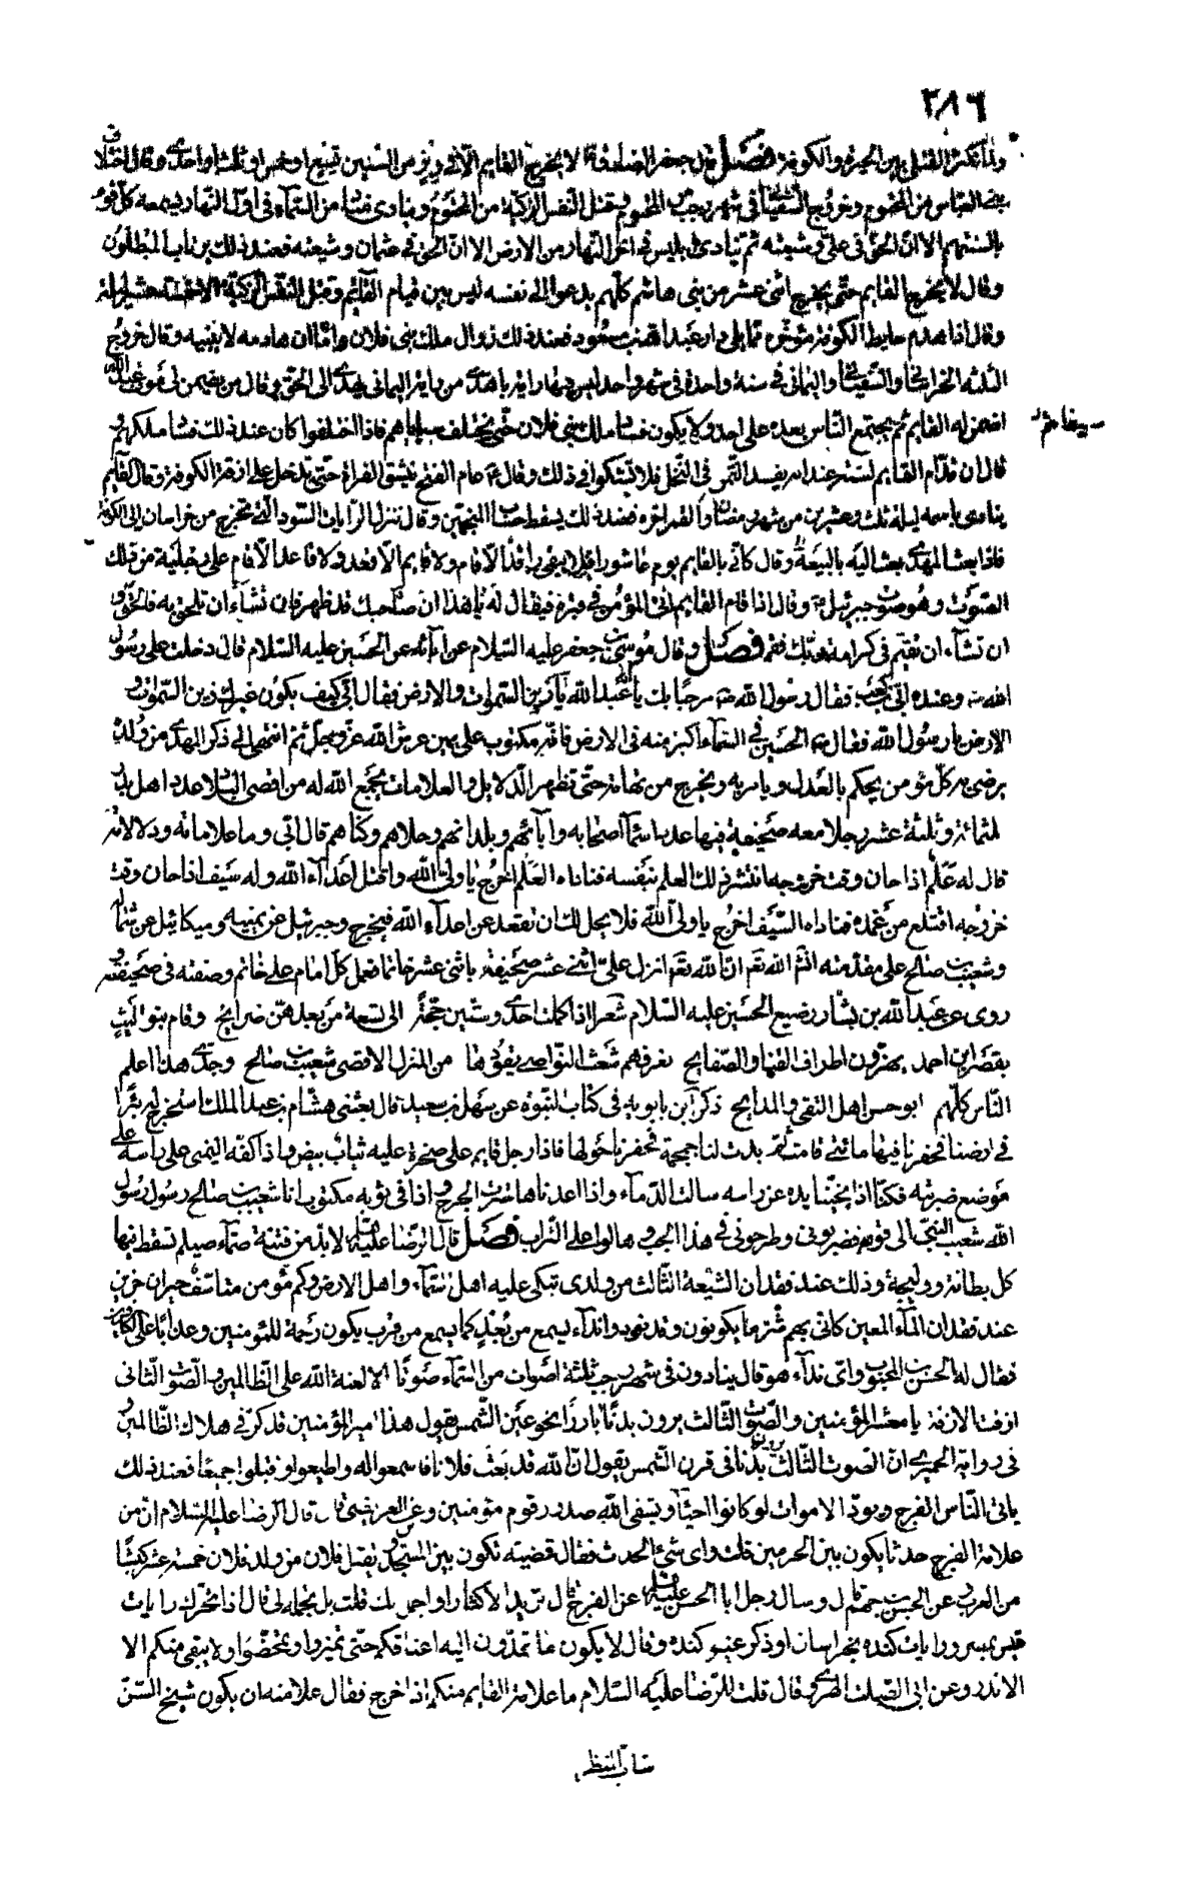 ٢٨٦
ولما كثر القتل بين الحيرة والكوفة فصل قال جعفر الصادق لا يخرج القايم الا في وتر من السنين تسع او خمس او ثلث او احدى وقال اختلاف
بنى العباس من المحتوم وخروج السفيانى في شهر رجب من المحتوم وقتل النفس الزكية من المحتوم وينادى مناد من السمآء فى اول النهار يسمعه كل قوم
بالسنتهم الا ان الحق فى على وشيعته ثم ينادى ابليس فى اخر النهار من الارض الا ان الحق فى عثمان وشيعته فعند ذلك يرتاب المبطلون
وقال لا يخرج القايم حتى يخرج اثنى عشر من بنى هاشم كلهم يدعو الى نفسه ليس بين قيام القآئم وقتل النفس الزكية الا خمسة عشر ليلة
وقال اذا هدم حايط الكوفة مؤخره مما يلى دار عبد الله بن مسعود فعند ذلك زوال ملك بنى فلان واما ان هادمه لا يبنيه وقال خروج
الثلثه الخراسانى والسفيانى واليمانى فى سنة واحدة فى شهر واحد ليس فيها راية باهدى من راية اليمانى يهدى الى الحق وقال من يضمن لى موت عبد الله
اضمن له القايم ثم يجتمع الناس بعده على احد ولا يكون فساد ملك بنى فلان حتى يختلف فاذا اختلفوا كان عند ذلك فساد ملكهم و
قال ان قدام القايم لسنة يفسد التمر فى النخل فلا تشكوا فى ذلك وقال عام الفتح ينشق الفراة حتى يدخل على ازقة الكوفة وقال القآيم
ينادى باسمه ليلة ثلث وعشرين من شهر رمضان وقال تنزل الرايات السود التى تخرج من خراسان الى الكوفة
فاذا بعث المهدى بعث اليه بالبيعة وقال كانى بالقايم يوم عاشورا فلا يبقى راقد الا قام ولا قايم الا قعد ولا قاعد الا قام على رجليه من ذلك
الصوت وهو صوت جبرئيل وقال اذا قام القايم اتى المؤمن فى قبره فيقال له يا هذا ان صاحبك قد ظهر فان تشآء ان تلحق به فالحق و
ان تشآء ان تقيم فى كرامة ربك فقم فصل وقال موسى بن جعفر عليه السلام عن ابآئه عن الحسين عليه السلام قال دخلت على رسول
الله ص وعنده ابى بن كعب فقال رسول الله ص مرحبا بك يا ابا عبد الله يا زين السموات والارض فقال ابى كيف يكون غيرك زين السموات و
الارض يا رسول الله فقال ص الحسين فى السمآء اكبر منه فى الارض فانه مكتوب على يمين عرش الله عز وجل ثم انتهى الى ذكر المهدى من ولده
يرضى به كل مؤمن يحكم بالعدل ويامر به ويخرج من تهامة حتى تظهر الدلايل والعلامات يجمع الله له من اقصى البلاد عدد اهل بدر
ثلثمائة وثلثة عشر رجلا معه صحيفة فيها عدد اسمآء اصحابه وابآئهم وبلدانهم وحلاهم وكناهم قال ابى وما علاماته ودلالاته
قال له علم اذا حان وقت خروجه انتشر ذلك العلم بنفسه فناداه العلم اخرج يا ولى الله واقتل اعدآء الله وله سيف اذا حان وقت
خروجه اقتلع من غمده فناداه السيف اخرج يا ولى الله فلا يحل لك ان تقعد عن اعدآء الله فيخرج وجبرئيل عن يمينه وميكائيل عن شماله
وشعيب بن صالح على مقدمته ثم ان الله تعم انزل على اثنى عشر صحيفة باثنى عشر خاتما فعمل كل امام على خاتم وصفته فى صحيفته و
روى عن عبد الله بن بشار رضيع الحسين عليه السلام شعر اذا كملت احدى وستين حجة الى تسعة من بعدهن ضرايح وقام بنو ليث
بقصر ابن احمد يهزون اطراف القنا والصفايح تعرفهم شعث النواصى يقودها من المنزل الاقصى شعيب بن صالح وجدى هذا اعلم
الناس كلهم ابو حسن اهل التقى والمدايح ذكر ابن بابويه فى كتاب النبوه عن سهل بن سعيد قال بعثنى هشام بن عبد الملك استخرج له بئرا
فى ارضنا فحفرنا فيها مائتى قامة ثم بدت لنا جمجمة فحفرنا حولها فاذا رجل قايم على صخرة عليه ثياب بيض واذا كفه اليمنى على راسه على
موضع ضربته فكنا اذا نحينا يده عن راسه سالت الدمآء واذا اعدناها سدت الجرح واذا فى ثوبه مكتوب انا شعيب بن صالح رسول رسول
الله شعيب النبى الى قومه فضربونى وطرحونى فى هذا الجب وهالوا على التراب فصل قال الرضا عليه السلام لا بد من فتنة صمآء صيلم تسقط فيها
كل بطانة ووليجة وذلك عند فقدان الشيعة الثالث من ولدى تبكى عليه اهل السمآء واهل الارض وكم مؤمن متاسف حيران حزين
عند فقدان المآء المعين كانى بهم شر ما يكونون وقد نودوا ندآء يسمع من بعد كما يسمع من قرب يكون رحمة للمؤمنين وعذابا على الكافرين
فقال له الحسن بن المحبوب واى ندآء هو قال ينادون فى شهر رجب ثلثة اصوات من السمآء صوتا الا لعنة الله على الظالمين والصوت الثانى
ازفت الازفة يا معشر المؤمنين والصوت الثالث يرون بدنا بارزا نحو عين الشمس يقول هذا امير المؤمنين قد كر فى هلاك الظالمين و
فى رواية الحميرى ان الصوت الثالث بدنا يرى فى قرن الشمس يقول ان الله قد بعث فلانا فاسمعوا له واطيعوا وقبلوا جميعا فعند ذلك
ياتى الناس الفرج ويود الاموات لو كانوا احيآء ويشفى الله صدور قوم مؤمنين وعن البزنطى قال قال الرضا عليه السلام ان من
علامة الفرج حدثا يكون بين الحرمين قلت واى شئ الحدث فقال قضيته تكون بين المسجدين ويقتل فلان من ولد فلان خمسة عشر كبشا
من العرب وعن الحسن بن جهم قال وسال رجل ابا الحسن عليه السلام عن الفرج قال تريد الاكثار او اجمل لك قلت بل بجمله لى قال اذا تحرك رايات
قيس بمصر ورايات كنده بخراسان او ذكر غير كنده وقال لا يكون ما تمدون اليه اعناقكم حتى تميزوا وتمحصوا ولا يبقى منكم الا
الاندر وعن ابى الصلت الهروى قال قلت للرضا عليه السلام ما علامة القايم منكم اذا خرج فقال علامته ان يكون شيخ السن
شاب المنظر